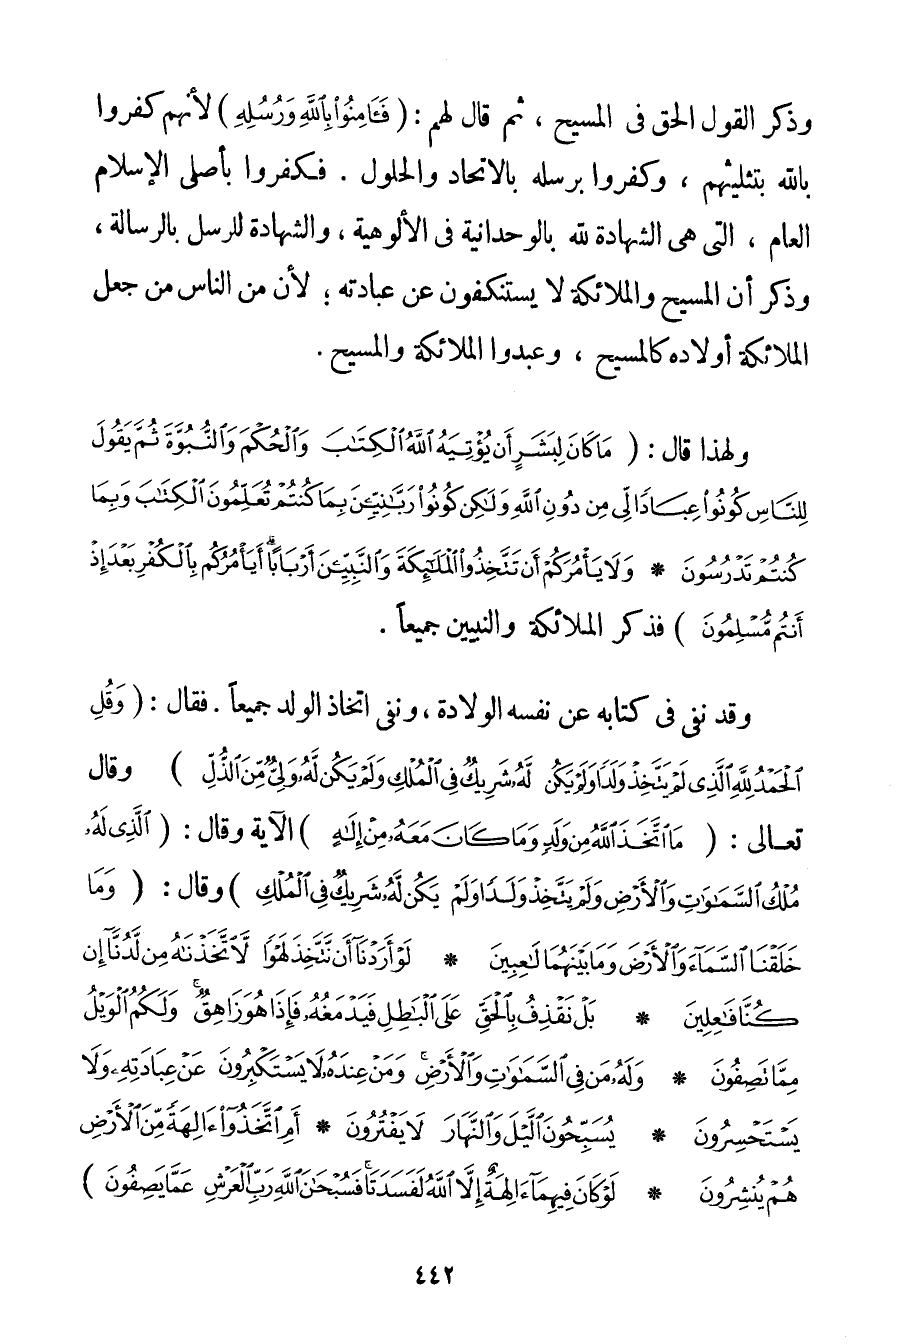 وذكر القول الحق فى المسيح ، ثم قال لهم : ( فَـَٔامِنُوا۟ بِٱللَّهِ وَرُسُلِهِۦ ) لأنهم كفروا
بالله بتثليثهم ، وكفروا برسله بالاتحاد والحلول . فكفروا بأصلى الإسلام
العام ، التى هى الشهادة لله بالوحدانية فى الألوهية ، والشهادة للرسل بالرسالة ،
وذكر أن المسيح والملائكة لا يستنكفون عن عبادته ؛ لأن من الناس من جعل
الملائكة أولاده كالمسيح ، وعبدوا الملائكة والمسيح .
ولهذا قال : ( مَا كَانَ لِبَشَرٍ أَن يُؤْتِيَهُ ٱللَّهُ ٱلْكِتَٰبَ وَٱلْحُكْمَ وَٱلنُّبُوَّةَ ثُمَّ يَقُولَ
لِلنَّاسِ كُونُوا۟ عِبَادًا لِّى مِن دُونِ ٱللَّهِ وَلَٰكِن كُونُوا۟ رَبَّٰنِيِّـۧنَ بِمَا كُنتُمْ تُعَلِّمُونَ ٱلْكِتَٰبَ وَبِمَا
كُنتُمْ تَدْرُسُونَ * وَلَا يَأْمُرَكُمْ أَن تَتَّخِذُوا۟ ٱلْمَلَٰٓئِكَةَ وَٱلنَّبِيِّـۧنَ أَرْبَابًا ۗ أَيَأْمُرُكُم بِٱلْكُفْرِ بَعْدَ إِذْ
أَنتُم مُّسْلِمُونَ ) فذكر الملائكة والنبيين جميعاً .
وقد نفى فى كتابه عن نفسه الولادة ، ونفى اتخاذ الولد جميعاً . فقال : ( وَقُلِ
ٱلْحَمْدُ لِلَّهِ ٱلَّذِى لَمْ يَتَّخِذْ وَلَدًا وَلَمْ يَكُن لَّهُۥ شَرِيكٌ فِى ٱلْمُلْكِ وَلَمْ يَكُن لَّهُۥ وَلِىٌّ مِّنَ ٱلذُّلِّ ) وقال
تعالى : ( مَا ٱتَّخَذَ ٱللَّهُ مِن وَلَدٍ وَمَا كَانَ مَعَهُۥ مِنْ إِلَٰهٍ ) الآية وقال : ( ٱلَّذِى لَهُۥ
مُلْكُ ٱلسَّمَٰوَٰتِ وَٱلْأَرْضِ وَلَمْ يَتَّخِذْ وَلَدًا وَلَمْ يَكُن لَّهُۥ شَرِيكٌ فِى ٱلْمُلْكِ ) وقال : ( وَمَا
خَلَقْنَا ٱلسَّمَآءَ وَٱلْأَرْضَ وَمَا بَيْنَهُمَا لَٰعِبِينَ * لَوْ أَرَدْنَآ أَن نَّتَّخِذَ لَهْوًا لَّٱتَّخَذْنَٰهُ مِن لَّدُنَّآ إِن
كُنَّا فَٰعِلِينَ * بَلْ نَقْذِفُ بِٱلْحَقِّ عَلَى ٱلْبَٰطِلِ فَيَدْمَغُهُۥ فَإِذَا هُوَ زَاهِقٌ ۚ وَلَكُمُ ٱلْوَيْلُ
مِمَّا تَصِفُونَ * وَلَهُۥ مَن فِى ٱلسَّمَٰوَٰتِ وَٱلْأَرْضِ ۚ وَمَنْ عِندَهُۥ لَا يَسْتَكْبِرُونَ عَنْ عِبَادَتِهِۦ وَلَا
يَسْتَحْسِرُونَ * يُسَبِّحُونَ ٱلَّيْلَ وَٱلنَّهَارَ لَا يَفْتُرُونَ * أَمِ ٱتَّخَذُوٓا۟ ءَالِهَةً مِّنَ ٱلْأَرْضِ
هُمْ يُنشِرُونَ * لَوْ كَانَ فِيهِمَآ ءَالِهَةٌ إِلَّا ٱللَّهُ لَفَسَدَتَا ۚ فَسُبْحَٰنَ ٱللَّهِ رَبِّ ٱلْعَرْشِ عَمَّا يَصِفُونَ )
٤٤٢